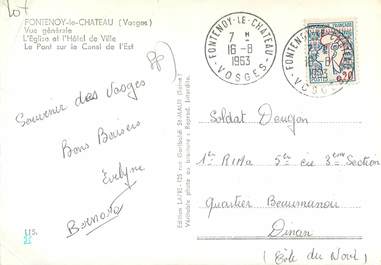 Lot
FONTENOY-le-CHATEAU (Vosges)
Vue générale
L'Eglise et l'Hôtel de Ville
Le Pont sur le Canal de l'Est
Souvenir des Vosges
Bons Baisers
Evelyne
Bernard
115
Edition LAPIE - 125 rue Garibaldi St-MAUR (Seine)
Véritable photo au bromure - Reprod. Interdite.
FONTENOY-LE-CHATEAU
7 H
16-8
1963
VOSGES
FONTENOY-LE-CHATEAU
16-8
1963
VOSGES
0,20
Soldat Dougon
1er RIMa 5e cie 3eme Section
Quartier Beaumanoir
Dinan
(Côte du Nord)